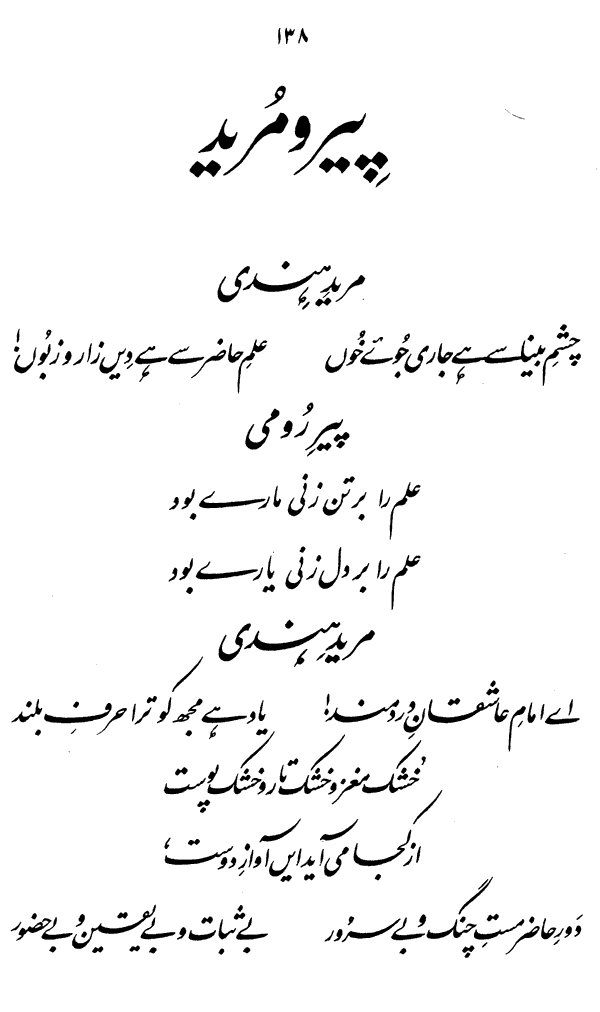 ۱۳۸
پِیر و مُرید
مریدِ ہِندی
چشمِ بینا سے ہے جاری جُوئے خُوں    علمِ حاضر سے ہے دِیں زار و زبُوں!
پیرِ رُومی
علم را بر تن زنی مارے بود
علم را بر دل زنی یارے بود
مریدِ ہندی
اے امامِ عاشقانِ دردمند!    یاد ہے مجھ کو ترا حرفِ بلند
’خشک مغز و خشک تار و خشک پوست
از کجا می آید ایں آوازِ دوست‘
دَورِ حاضر مستِ چنگ و بے سرُور    بے ثبات و بے یقین و بے حضور